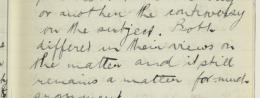 or another the controversy
on the subject. Both
differed in their views on
the matter and it still
remains a matter for much
argument